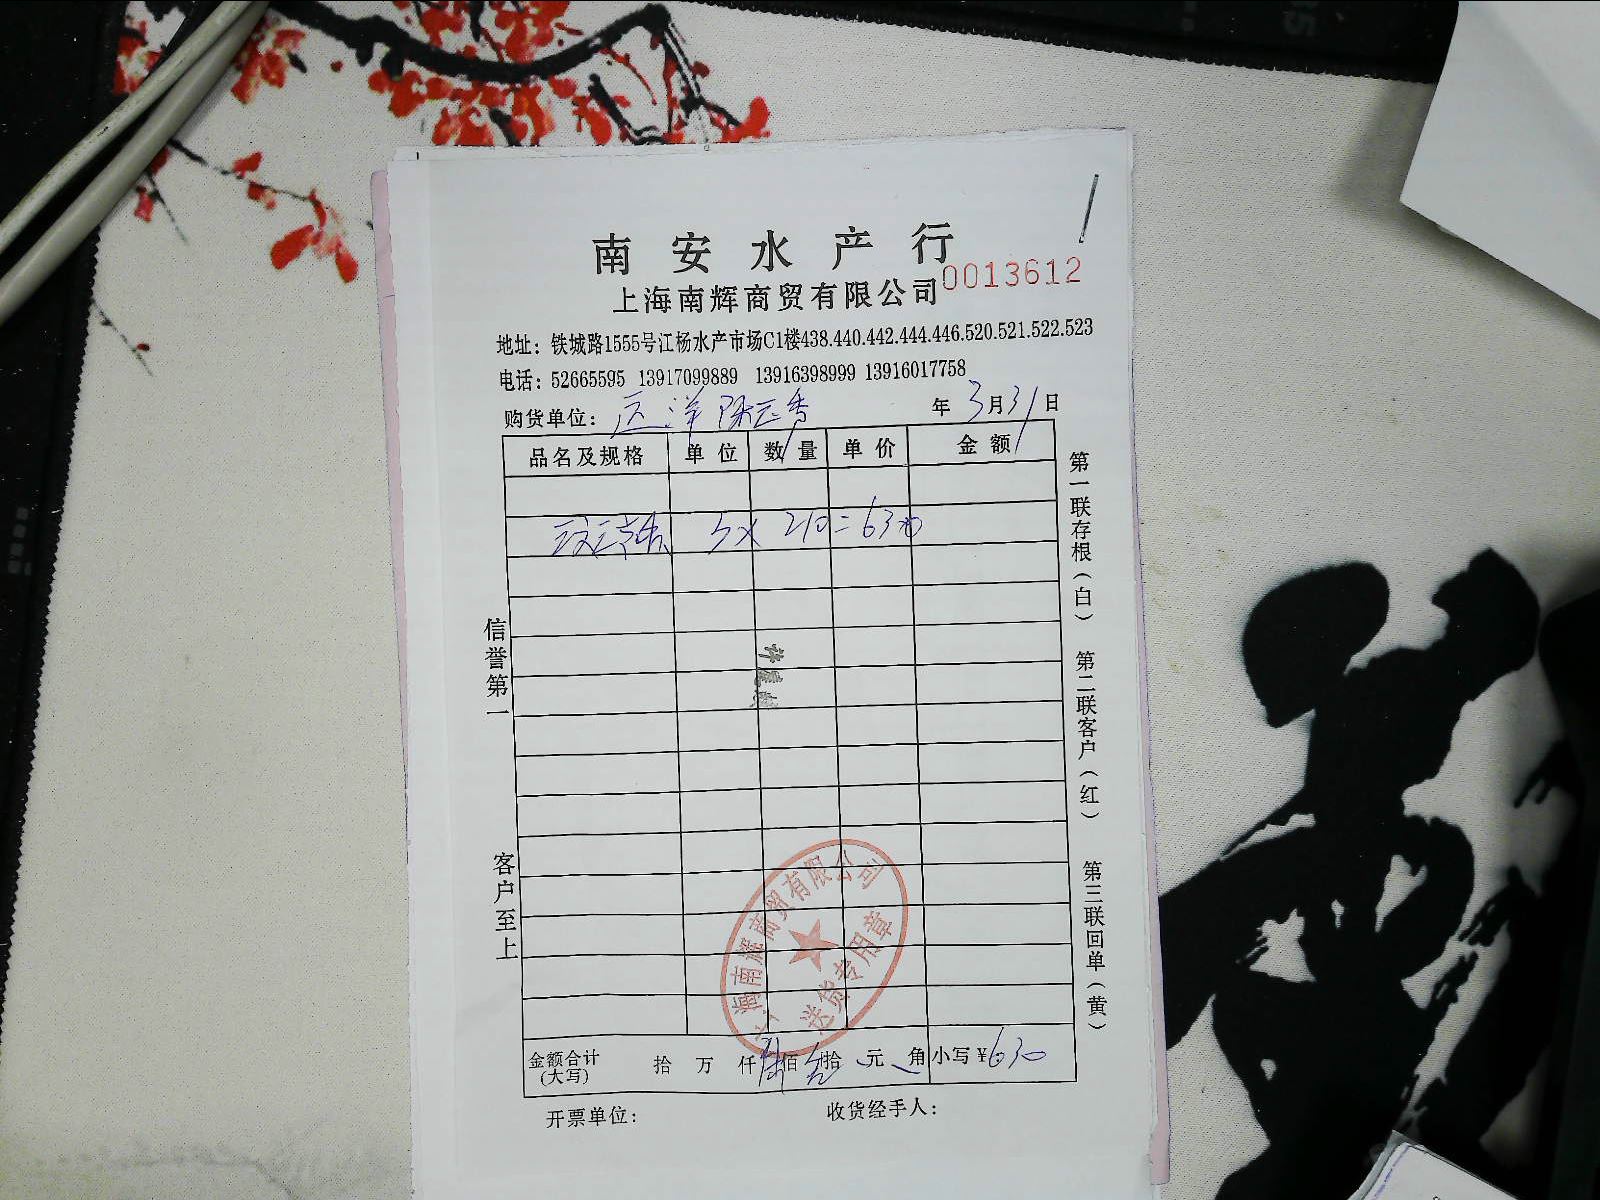 南安水产行
上海南辉商贸有限公司 0013612
地址：铁城路1555号江杨水产市场C1楼438.440.442.444.446.520.521.522.523
电话：52665595 13917099889 13916398999 13916017758
购货单位： 年3月31日
品名及规格 单位 数量 单价 金额
3x 210=630
信誉第一
客户至上
第一联存根（白） 第二联客户（红） 第三联回单（黄）
上海南辉商贸有限公司
送货专用章
金额合计(大写) 拾 万 仟 陆佰 叁拾 元 角 小写¥630
开票单位： 收货经手人：